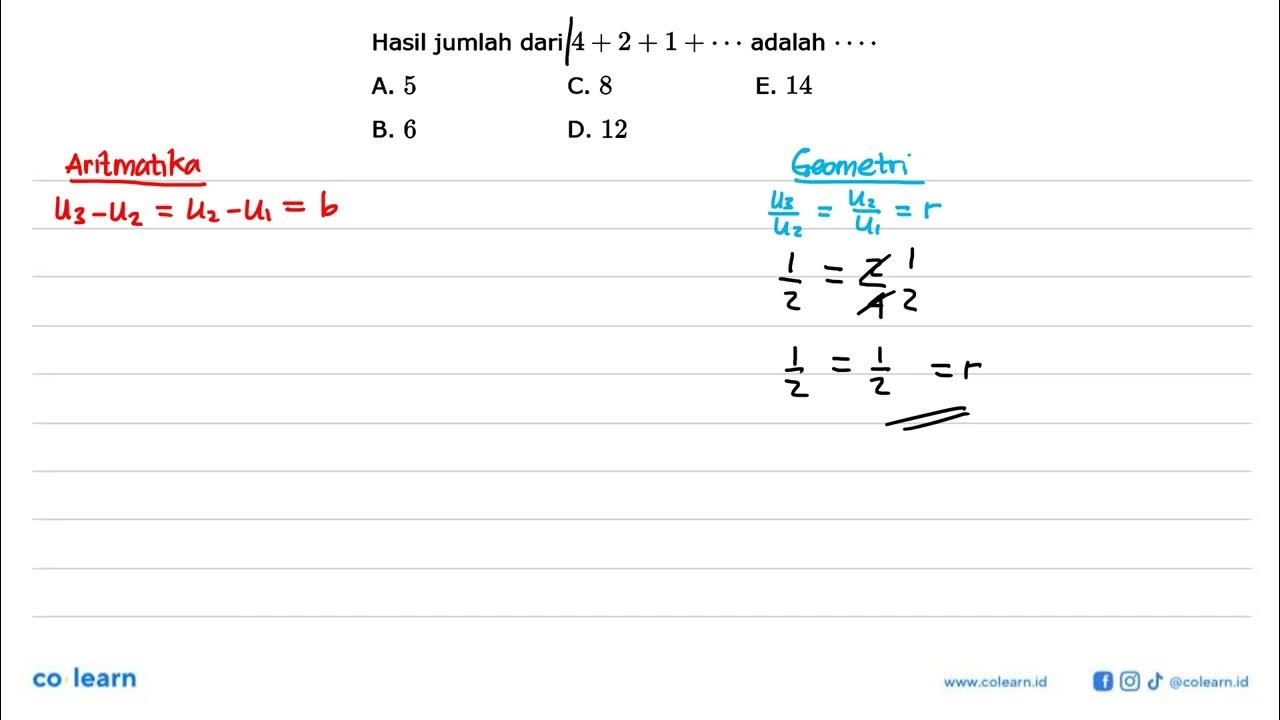 Hasil jumlah dari 4 + 2 + 1 + ··· adalah ····
A. 5 C. 8 E. 14
B. 6 D. 12
Aritmatika
U₃ - U₂ = U₂ - U₁ = b
Geometri
U₃/U₂ = U₂/U₁ = r
1/2 = 2/4 1/2
1/2 = 1/2 = r
co learn
www.colearn.id
@colearn.id